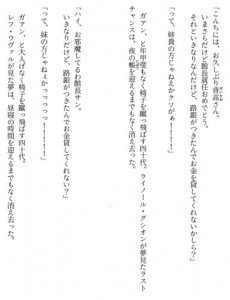 「こんちにには、お久しぶり背高さん。
いまさらだけど館長就任おめでとう。
それといきなりなんだけど、路銀がつきたんでお金貸してくれないかしら?」
「って、姉貴の方じゃねぇかクソがぁーーーーー!」
ガアン、と年甲斐もなく椅子を蹴っ飛ばす四十代。ライノール・グシオンが夢見たラスト
チャンスは、夜の帳を迎えるまでもなく消え去った。
「ハイ、お邪魔してるわ館長サン。
いきなりだけど、路銀がつきたんでお金を貸してくれない?」
「って、妹の方じゃねぇかっっっっっ!」
ガアン、と大人げなく椅子を蹴っ飛ばす四十代。
レフ・ウヴァルが見た夢は、昼寝の時間を迎えるまでもなく消え去った。